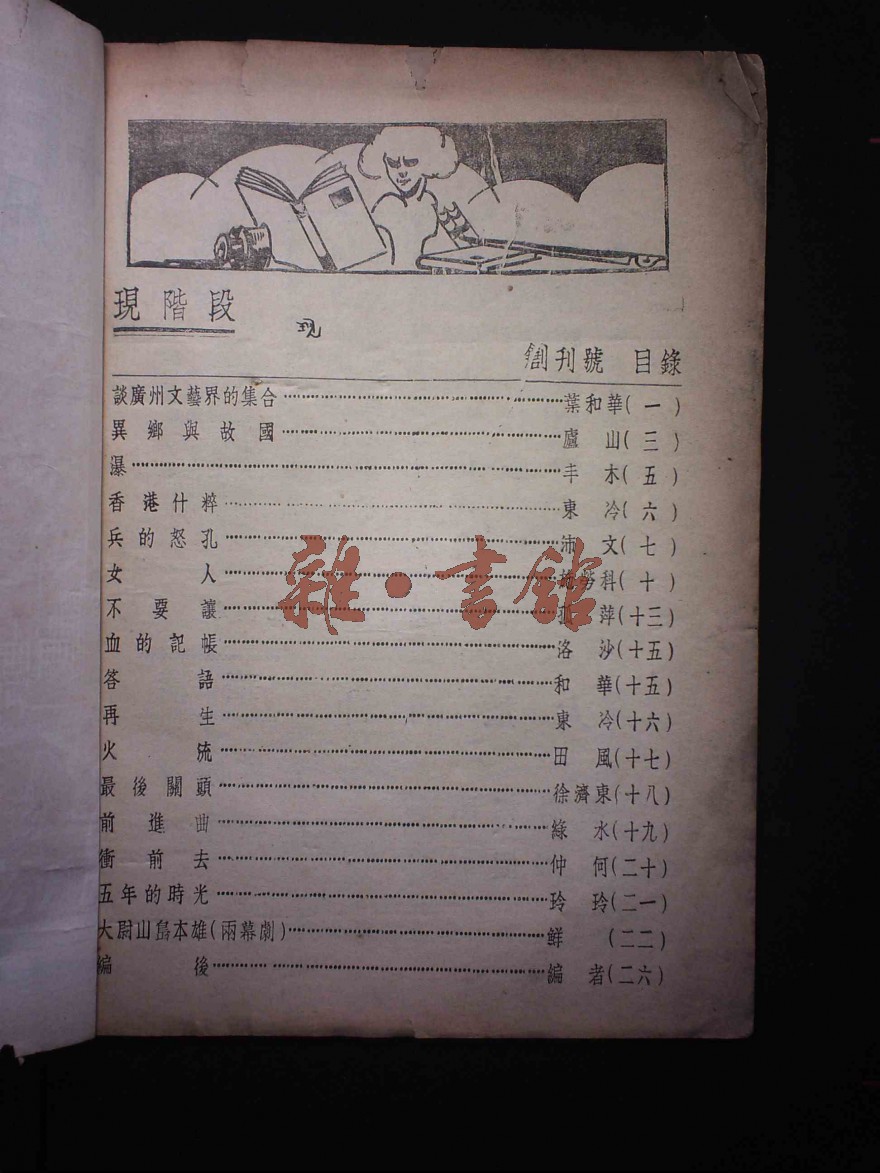 現階段
现
創刊號 目錄
談廣州文藝界的集合……葉和華(一)
異鄉與故國……廬山(三)
瀑……丰木(五)
香港什粹……東冷(六)
兵的怒孔……沛文(七)
女人……勞科(十)
不要讓……萍(十三)
血的記帳……洛沙(十五)
答語……和華(十五)
再生……東冷(十六)
火流……田風(十七)
最後關頭……徐濟東(十八)
前進曲……綠水(十九)
衝前去……仲何(二十)
五年的時光……玲玲(二一)
大尉山島本雄(兩幕劇)……鲜(二二)
編後……編者(二六)
雜·書館